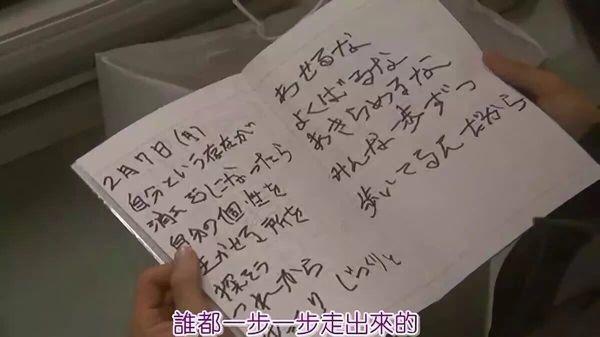 2月7日(月)
自分という存在が
消えそうになったら
自分の個性を
生かせる所を
探そう
じっくりと
あせるな
よくばるな
あきらめるな
みんな一歩ずつ
歩いてるんだから
誰都一步一步走出來的